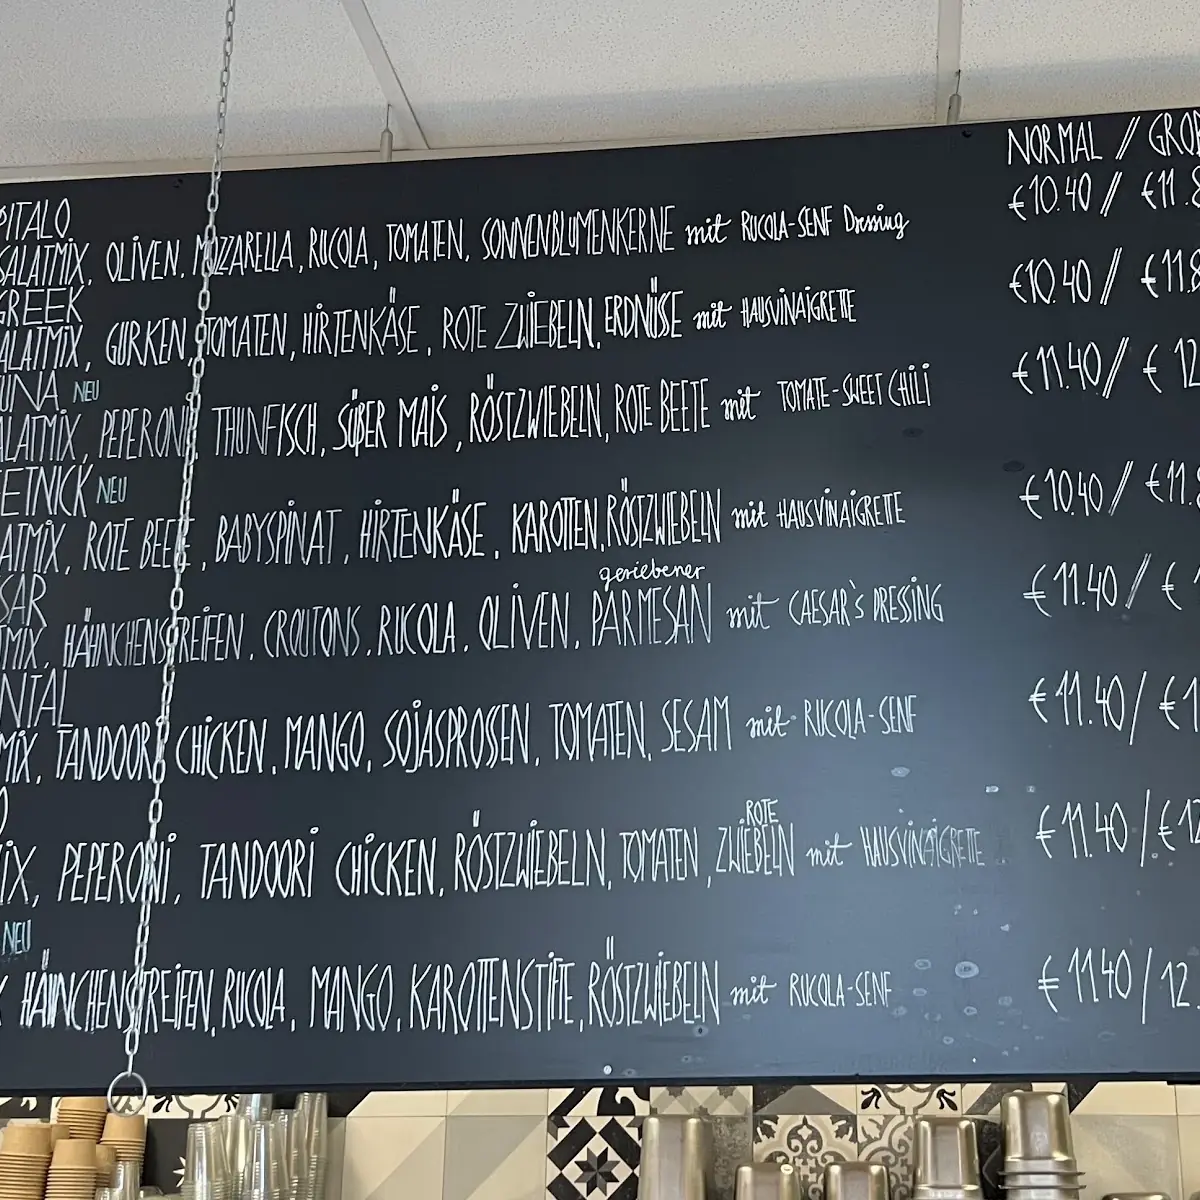 NORMAL // GROß
PITALO €10.40 // €11.8
SALATMIX, OLIVEN, MOZZARELLA, RUCOLA, TOMATEN, SONNENBLUMENKERNE mit RUCOLA-SENF Dressing
GREEK €10.40 // €11.8
ALATMIX, GURKEN, TOMATEN, HIRTENKÄSE, ROTE ZWIEBELN, ERDNÜSSE mit HAUSVINAIGRETTE
UNA NEU €11.40 // € 12
ALATMIX, PEPERONI, THUNFISCH, SÜßER MAIS, RÖSTZWIEBELN, ROTE BEETE mit TOMATE-SWEET CHILI
EETNICK NEU €10.40 // €11.8
ATMIX, ROTE BEETE, BABYSPINAT, HIRTENKÄSE, KAROTTEN, RÖSTZWIEBELN mit HAUSVINAIGRETTE
SAR €11.40 // €
geriebener
TMIX, HÄHNCHENSTREIFEN, CROUTONS, RUCOLA, OLIVEN, PARMESAN mit CAESAR`S DRESSING
NTAL €11.40 / €1
MIX, TANDOORI CHICKEN, MANGO, SOJASPROSSEN, TOMATEN, SESAM mit RUCOLA-SENF
O €11.40 / €12
ROTE
IX, PEPERONI, TANDOORI CHICKEN, RÖSTZWIEBELN, TOMATEN, ZWIEBELN mit HAUSVINAIGRETTE
NEU
HÄHNCHENSTREIFEN, RUCOLA, MANGO, KAROTTENSTIFTE, RÖSTZWIEBELN mit RUCOLA-SENF €11.40 / 12